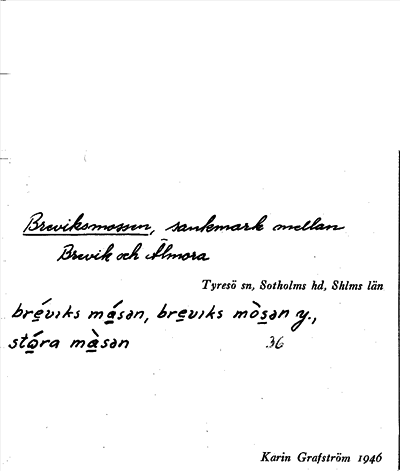 Breviksmossen, sankmark mellan
Brevik och Älmora
Tyresö sn, Sotholms hd, Shlms län
brévıks másən, brévıks mòsən y.,
stóra màsən 36
Karin Grafström 1946